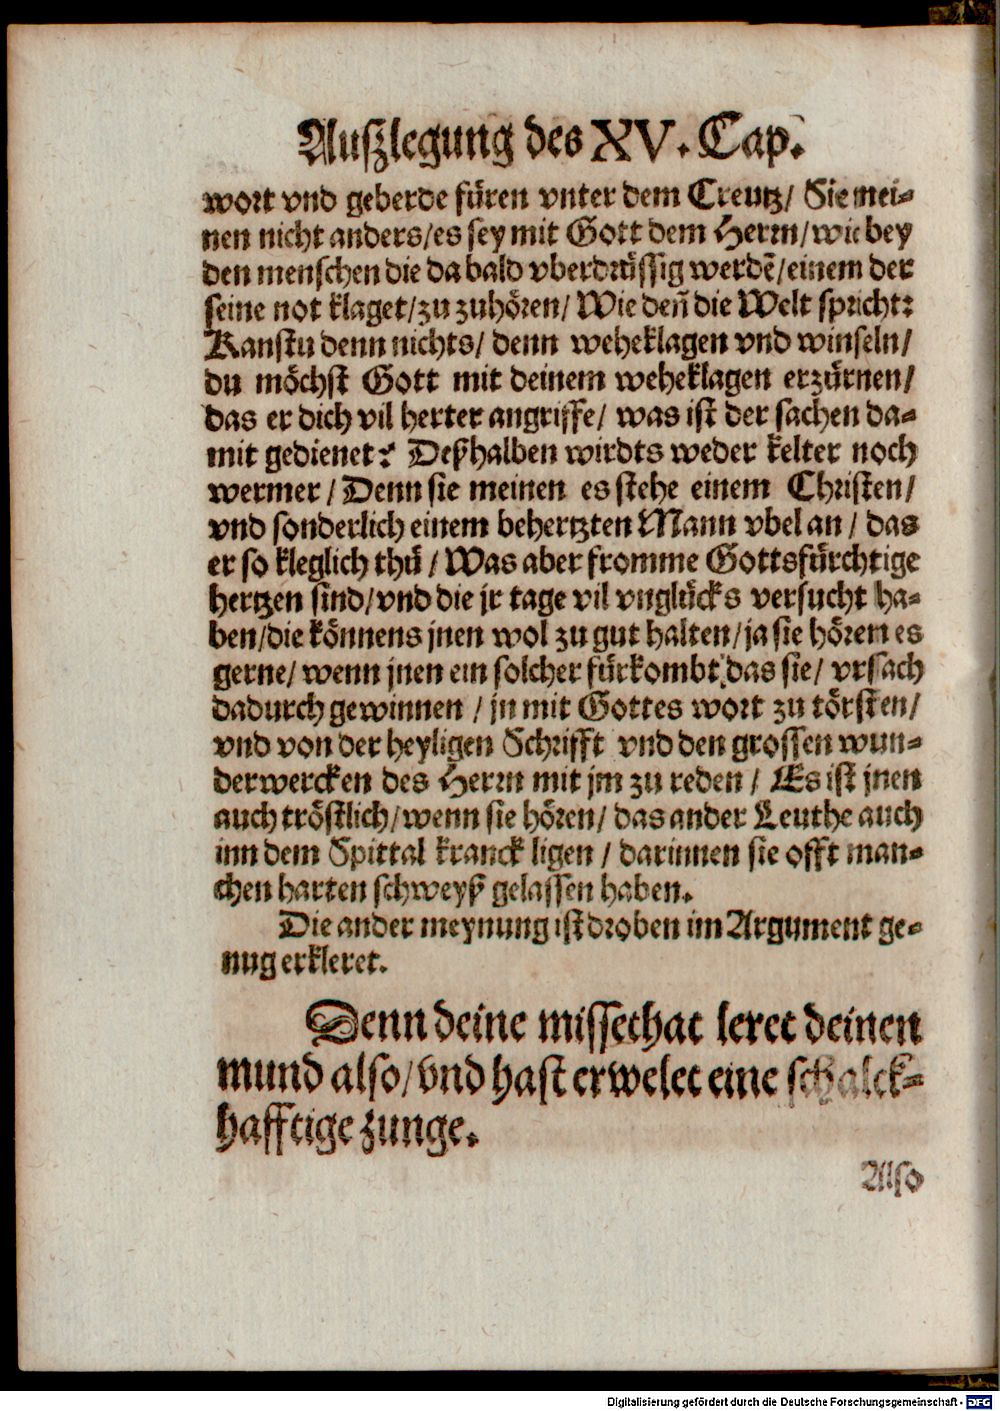 Auſzlegung des XV. Cap.
wort vnd geberde füren vnter dem Creutz/ Sie mei⸗
nen nicht anders/es ſey mit Gott dem Herrn/wie bey
den menſchen die da bald vberdrüſſig werdē/einem der
ſeine not klaget/zu zuhören/ Wie deñ die Welt ſpricht:
Kanſtu denn nichts/ denn weheklagen vnd winſeln/
du möchſt Gott mit deinem weheklagen erzürnen/
das er dich vil herter angriffe/ was iſt der ſachen da⸗
mit gedienet? Deßhalben wirdts weder kelter noch
wermer/ Denn ſie meinen es ſtehe einem Chriſten/
vnd ſonderlich einem behertzten Mann vbel an/ das
er ſo kleglich thü/ Was aber fromme Gottsfürchtige
hertzen ſind/vnd die jr tage vil vnglücks verſucht ha⸗
ben/die können s jnen wol zu gut halten/ja ſie hören es
gerne/ wenn jnen ein ſolcher fürkombt, das ſie/ vrſach
dadurch gewinnen/ jn mit Gottes wort zu törſten/
vnd von der heyligen Schrifft vnd den groſſen wun⸗
derwercken des Herrn mit jm zu reden/ Es iſt jnen
auch tröſtlich/wenn ſie hören/ das ander Leuthe auch
inn dem Spittal kranck ligen/ darinnen ſie offt man⸗
chen harten ſchweyß gelaſſen haben.
Die ander meynung iſt droben im Argument ge⸗
nug erkleret.
Denn deine miſſethat leret deinen
mund alſo/vnd haſt erwelet eine ſchalck⸗
hafftige zunge.
Alſo
Digitalisierung gefördert durch die Deutsche Forschungsgemeinschaft - DFG